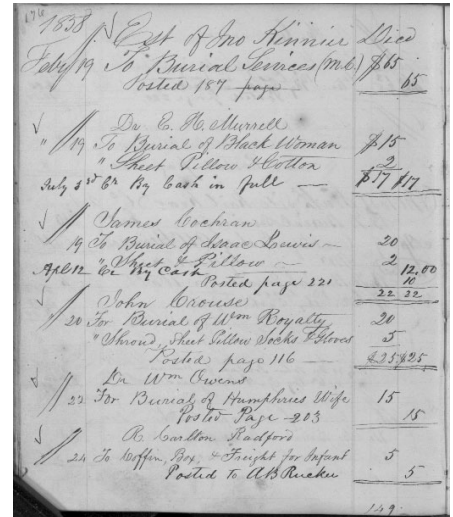 176
1858
Est of Jno Kinnier Died
Feby 19 To Burial Services (m.c.) $65
Posted 187 page 65
Dr E. H. Murrell
" 19 To Burial of Black Woman $15
" Sheet Pillow & Cotton 2
July 3rd Cr By Cash in full $17 $17
James Cochran
19 To Burial of Isaac Lewis 20
" Sheet & Pillow 2
Apl 12 Cr By Cash 12.00
Posted page 221 10
22 22
John Crouse
20 For Burial of Wm Royalty 20
" Shroud, Sheet Pillow Socks & Gloves 5
Posted page 116 $25 $25
Dr Wm Owens
22 For Burial of Humphries Wife 15
Posted Page 203 15
R Carlton Radford
24 To Coffin, Box, & Freight for Infant 5
Posted to AB Rucker 5
149